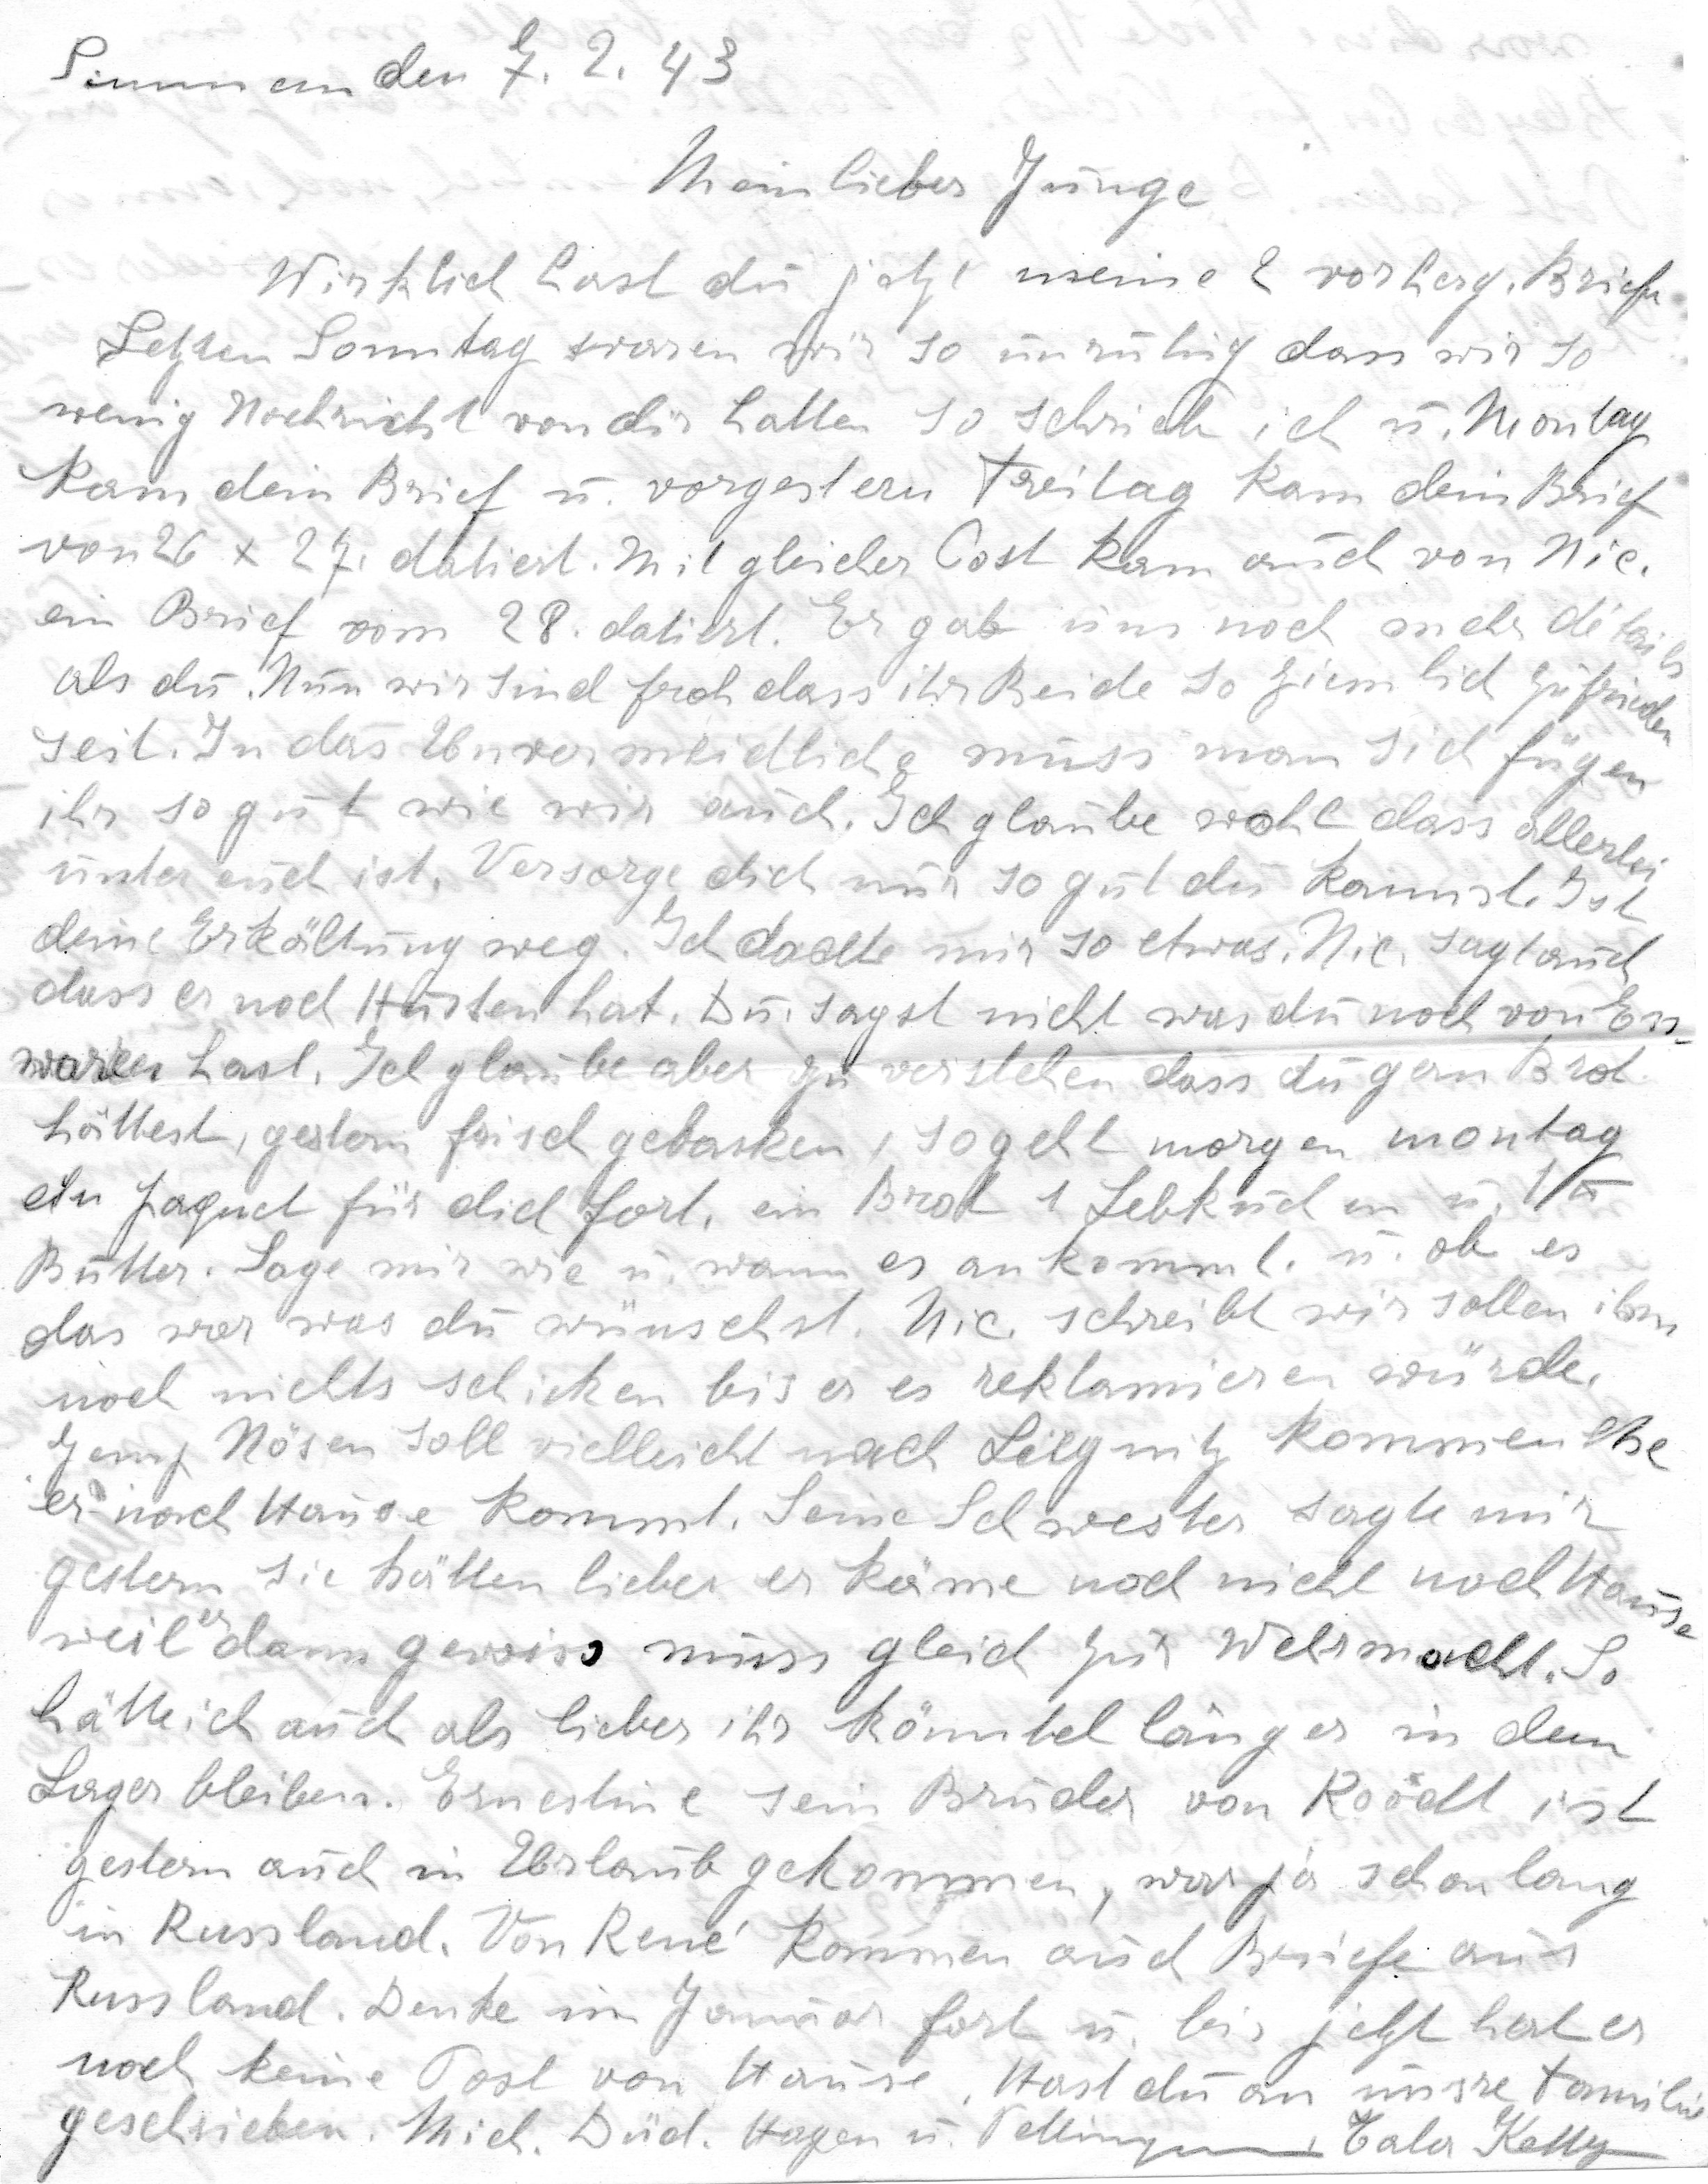 den 7. 2. 43
Mein lieber Junge
Wirklich hast du jetzt meine 2 vorherg. Briefe
Letzten Sonntag waren wir so unruhig dass wir so
wenig Nachricht von dir hatten so schrieb ich u. Montag
kam dein Brief u. vorgestern Freitag kam dein Brief
von 26 x 27. datiert. Mit gleicher Post kam auch von Nic.
ein Brief vom 28. datiert. Er gab uns noch mehr détails
als du. Nun wir sind froh dass ihr Beide so ziemlich zufrieden
seit. In das Unvermeidliche muss man sich fügen
ihr so gut wie wir auch. Ich glaube wohl dass allerlei
unter euch ist. Versorge dich nur so gut du kannst. Ist
deine Erkältung weg. Ich dachte mir so etwas. Nic. sagt auch
dass er noch Husten hat. Du sagst nicht was du noch von Ess-
waren hast. Ich glaube aber zu verstehen dass du gern Brot
hättest, gestern frisch gebacken, so geht morgen montag
ein paquet für dich fort. ein Brot 1 Lebkuchen u. 1
Butter. Sage mir wie u. wann es ankommt. u. ob es
das war was du wünschst. Nic. schreibt wir sollen ihm
noch nichts schicken bis er es reklamieren würde.
Jemp Nösen soll vielleicht nach Leignitz kommen ehe
er nach Hause kommt. Seine Schwester sagte mir
gestern sie hätten lieber er käme noch nicht nach Hause
weil er dann gewiss muss gleich zur Wehrmacht. So
hätte ich auch als lieber ihr könntet länger in dem
Lager bleiben. Ernestine sein Bruder von Roodt ist
gestern auch in Urlaub gekommen, war ja schon lang
in Russland. Von René kommen auch Briefe aus
Russland. Denke im Januar fort u. bis jetzt hat er
noch keine Post von Hause. Hast du an unsre Familie
geschrieben. Mich. Düd. Hagen u. Pettingen, Ketty